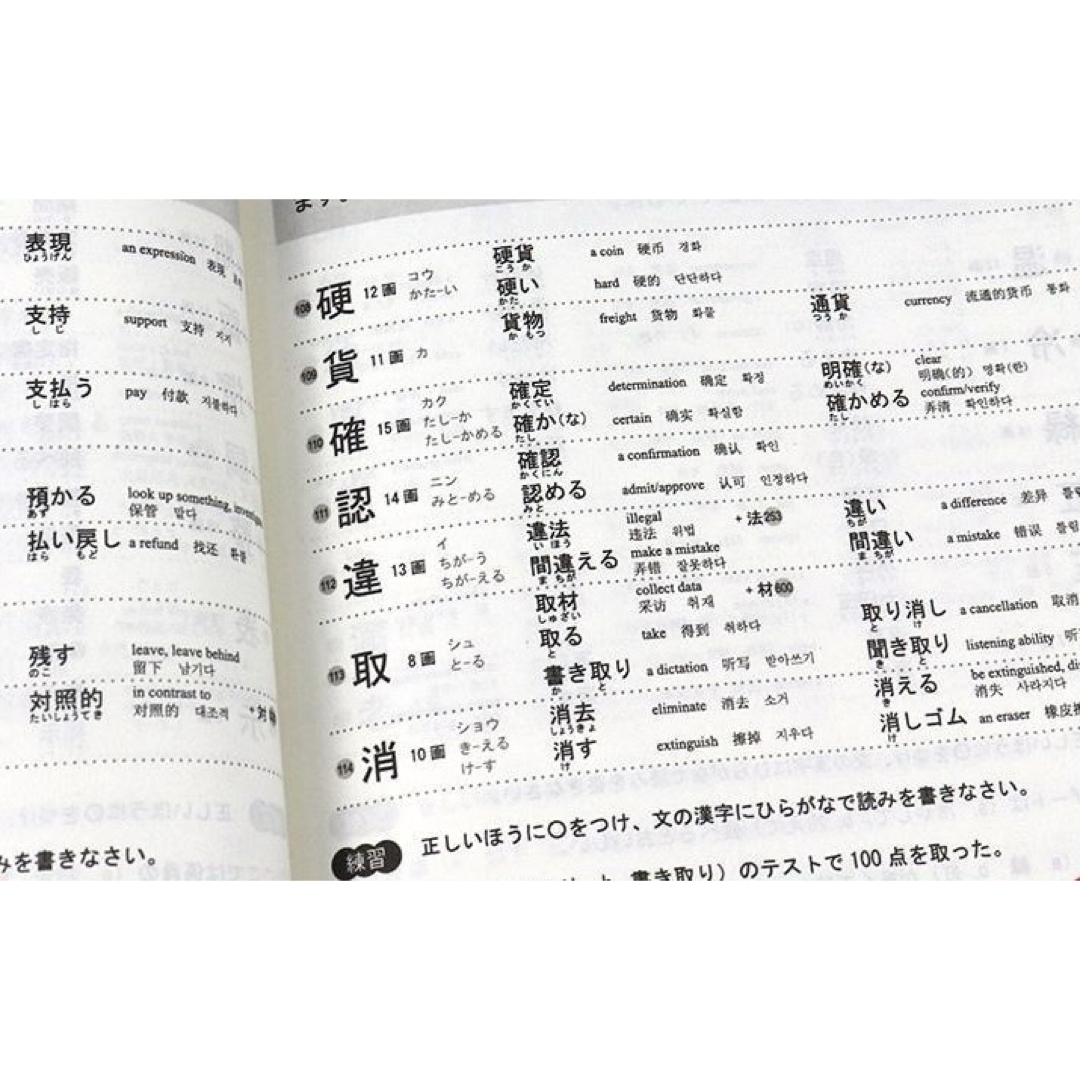 表現 an expression 表现
ひょうげん
支持 support 支持 지지
しじ
支払う pay 付款 지불하다
しはら
預かる look up something,
あず 保管 맡다
払い戻し a refund 找还 환불
はらもど
残す leave, leave behind
のこ 留下 남기다
対照的 in contrast to
たいしょうてき 对照的 대조적
みを書きなさい。
ます。
108 硬 12画 コウ かたーい
硬貨 a coin 硬币 경화
こうか
硬い hard 硬的 단단하다
かた
109 貨 11画 カ
貨物 freight 货物 화물
かもつ
通貨 currency 流通的货币 통화
つうか
110 確 15画 カク たしーか たしーかめる
確定 determination 确定 확정
かくてい
明確(な) clear 明确(的) 명확(한)
めいかく
確か(な) certain 确实 확실함
たし
確かめる confirm/verify 弄清 확인하다
たし
111 認 14画 ニン みとーめる
確認 a confirmation 确认 확인
かくにん
認める admit/approve 认可 인정하다
みと
112 違 13画 イ ちがーう ちがーえる
違法 illegal 违法 위법 +法253
いほう
違い a difference 差异
ちが
間違える make a mistake 弄错 잘못하다
まちが
間違い a mistake 错误
まちが
113 取 8画 シュ とーる
取材 collect data 采访 취재 +材600
しゅざい
取る take 得到 취하다
と
取り消し a cancellation 取消
とけ
書き取り a dictation 听写 받아쓰기
かと
聞き取り listening ability
きと
114 消 10画 ショウ きーえる けーす
消去 eliminate 消去 소거
しょうきょ
消える be extinguished, 消失 사라지다
き
消す extinguish 擦掉 지우다
け
消しゴム an eraser
け
練習 正しいほうに○をつけ、文の漢字にひらがなで読みを書きなさい。
書き取り)のテストで100点を取った。